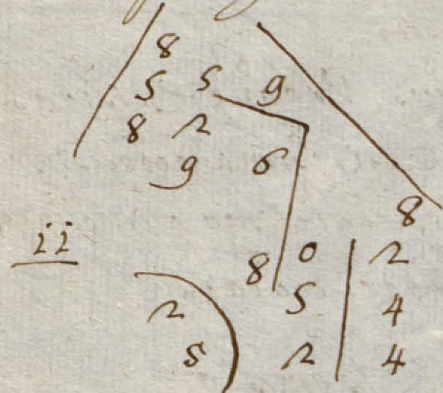 8
5 5 9
8 2
9 6
8
ii 8 0 2
2 5 4
5 2 4